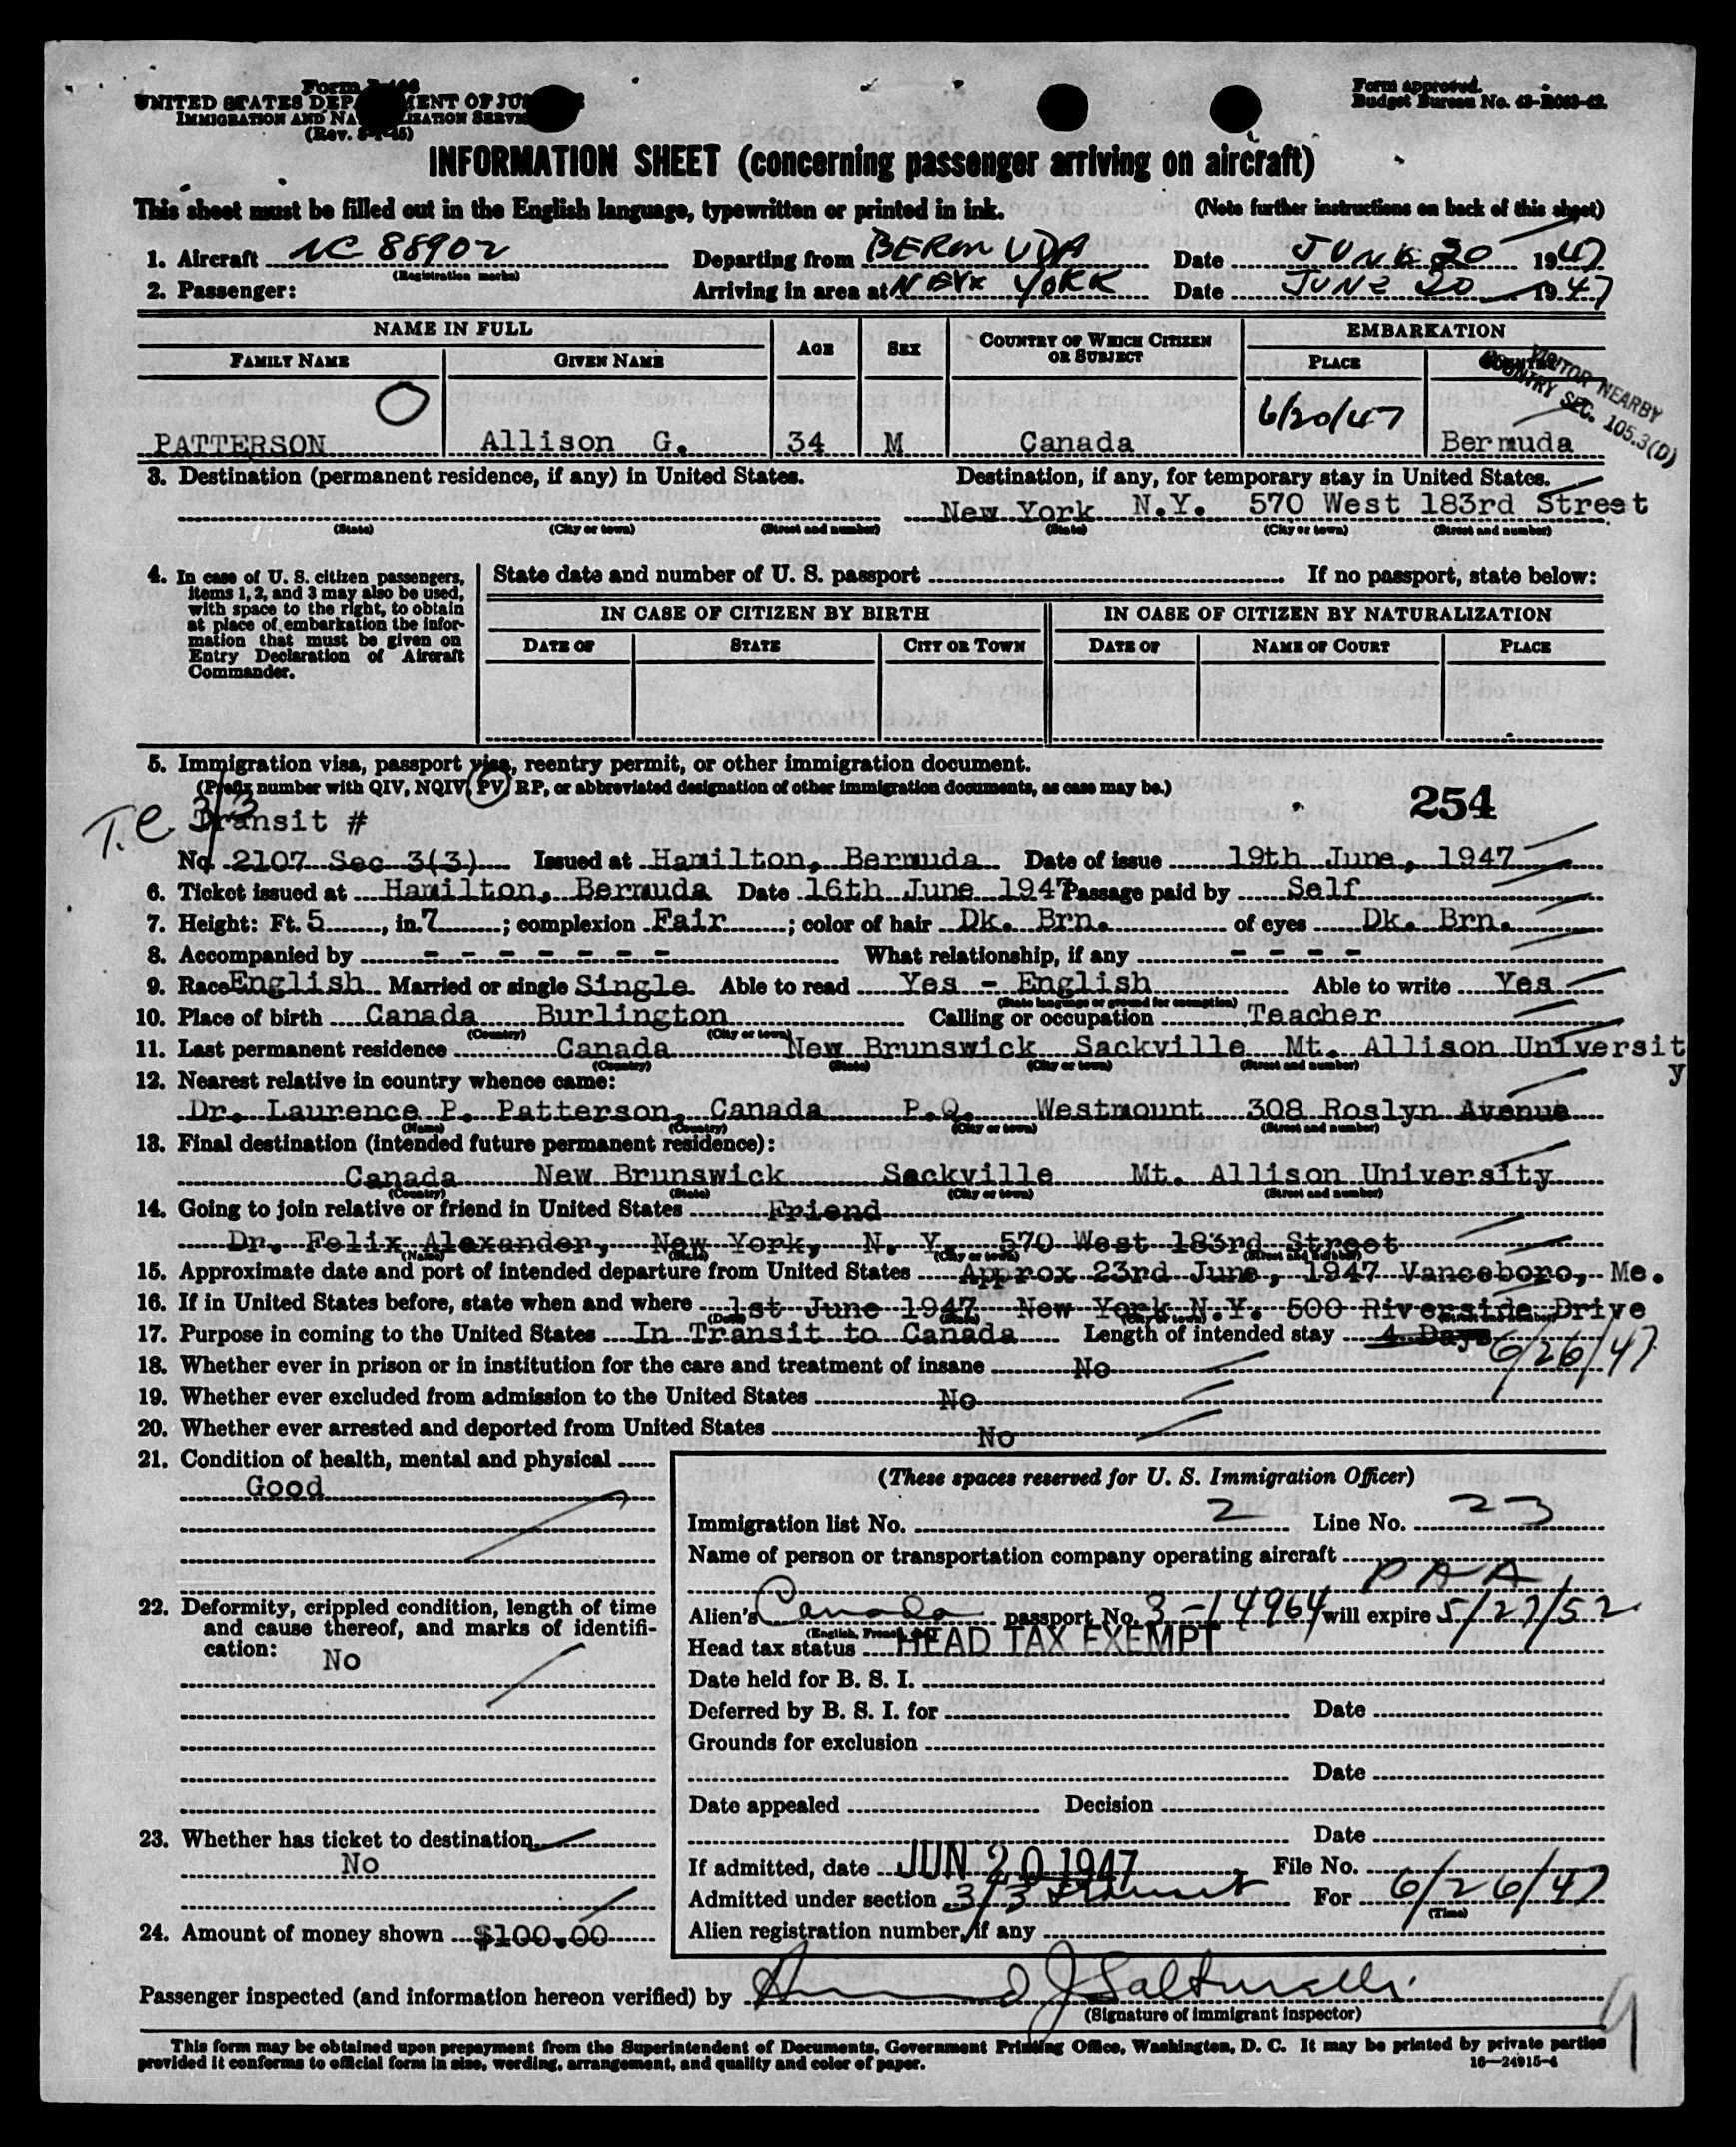 Form
UNITED STATES DEPA MENT OF JU
IMMIGRATION AND NA IZATION SERVI
(Rev. 5-1-45)
Form approved.
Budget Bureau No. 43-R063-42.
INFORMATION SHEET (concerning passenger arriving on aircraft)
This sheet must be filled out in the English language, typewritten or printed in ink. (Note further instructions on back of this sheet)
1. Aircraft NC 88902 Departing from BERMUDA Date JUNE 20 1947
(Registration marks)
2. Passenger: Arriving in area at NEW YORK Date JUNE 20 1947
NAME IN FULL AGE SEX COUNTRY OF WHICH CITIZEN OR SUBJECT EMBARKATION
FAMILY NAME GIVEN NAME PLACE
VISITOR NEARBY
COUNTRY SEC. 105.3(D)
6/20/47
PATTERSON Allison G. 34 M Canada Bermuda
3. Destination (permanent residence, if any) in United States. Destination, if any, for temporary stay in United States.
New York N.Y. 570 West 183rd Street
(State) (City or town) (Street and number) (State) (City or town) (Street and number)
4. In case of U. S. citizen passengers,
items 1, 2, and 3 may also be used,
with space to the right, to obtain
at place of embarkation the infor-
mation that must be given on
Entry Declaration of Aircraft
Commander.
State date and number of U. S. passport If no passport, state below:
IN CASE OF CITIZEN BY BIRTH IN CASE OF CITIZEN BY NATURALIZATION
DATE OF STATE CITY OR TOWN DATE OF NAME OF COURT PLACE
5. Immigration visa, passport visa, reentry permit, or other immigration document.
(Prefix number with QIV, NQIV, PV, RP, or abbreviated designation of other immigration documents, as case may be.)
254
T.C. 3/3
Transit #
No. 2107 Sec 3(3) Issued at Hamilton, Bermuda Date of issue 19th June, 1947
6. Ticket issued at Hamilton, Bermuda Date 16th June 1947 Passage paid by Self
7. Height: Ft. 5, in. 7; complexion Fair; color of hair Dk. Brn. of eyes Dk. Brn.
8. Accompanied by - - - - - - - What relationship, if any - - - -
9. Race English Married or single Single Able to read Yes - English Able to write Yes
(State language or ground for exemption)
10. Place of birth Canada Burlington Calling or occupation Teacher
(Country) (City or town)
11. Last permanent residence Canada New Brunswick Sackville Mt. Allison Universit
y
(Country) (State) (City or town) (Street and number)
12. Nearest relative in country whence came:
Dr. Laurence P. Patterson, Canada P.Q. Westmount 308 Roslyn Avenue
(Name) (Country) (City or town) (Street and number)
13. Final destination (intended future permanent residence):
Canada New Brunswick Sackville Mt. Allison University
(Country) (State) (City or town) (Street and number)
14. Going to join relative or friend in United States Friend
Dr. Felix Alexander, New York, N. Y. 570 West 183rd Street
(Name) (State) (City or town) (Street and number)
15. Approximate date and port of intended departure from United States Approx 23rd June, 1947 Vanceboro, Me.
16. If in United States before, state when and where 1st June 1947 New York N.Y. 500 Riverside Drive
(Date) (State) (City or town) (Street and number)
17. Purpose in coming to the United States In Transit to Canada Length of intended stay 4 Days 6/26/47
18. Whether ever in prison or in institution for the care and treatment of insane No
19. Whether ever excluded from admission to the United States No
20. Whether ever arrested and deported from United States No
21. Condition of health, mental and physical
Good
22. Deformity, crippled condition, length of time
and cause thereof, and marks of identifi-
cation:
No
23. Whether has ticket to destination
No
24. Amount of money shown $100.00
(These spaces reserved for U. S. Immigration Officer)
Immigration list No. 2 Line No. 23
Name of person or transportation company operating aircraft
PAA
Alien's Canada passport No. 3-14964 will expire 5/27/52
(English, French, etc.)
Head tax status HEAD TAX EXEMPT
Date held for B. S. I.
Deferred by B. S. I. for Date
Grounds for exclusion
Date
Date appealed Decision
Date
If admitted, date JUN 20 1947 File No.
Admitted under section 3/3 Transit For 6/26/47
(Time)
Alien registration number, if any
Passenger inspected (and information hereon verified) by
(Signature of immigrant inspector)
9
This form may be obtained upon prepayment from the Superintendent of Documents, Government Printing Office, Washington, D. C. It may be printed by private parties
provided it conforms to official form in size, wording, arrangement, and quality and color of paper.
16—24915-4